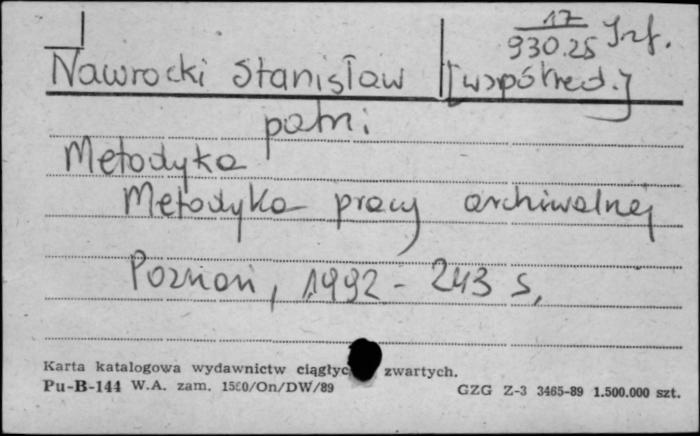 17
930.25 Inf.
Nawrocki Stanisław [współred.]
patrz:
Metodyka
Metodyka pracy archiwalnej
Poznań, 1992 - 243 s.
Karta katalogowa wydawnictw ciągłyc zwartych.
Pu-B-144 W.A. zam. 1560/On/DW/89 GZG Z-3 3465-89 1.500.000 szt.